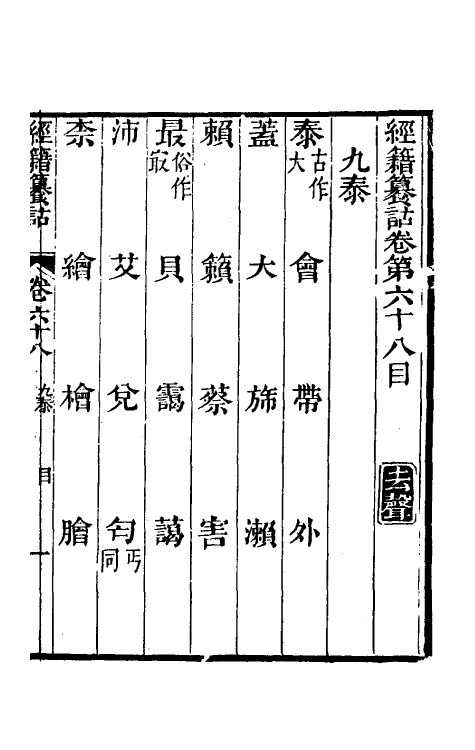 經籍籑詁卷第六十八目 去聲
九泰
泰古作大 會 帶 外
蓋 大 斾 瀨
賴 籟 蔡 害
最俗作㝡 貝 靄 藹
沛 艾 兌 匄丐同
柰 繪 檜 膾
經籍籑詁 卷六十八 九泰 目 一